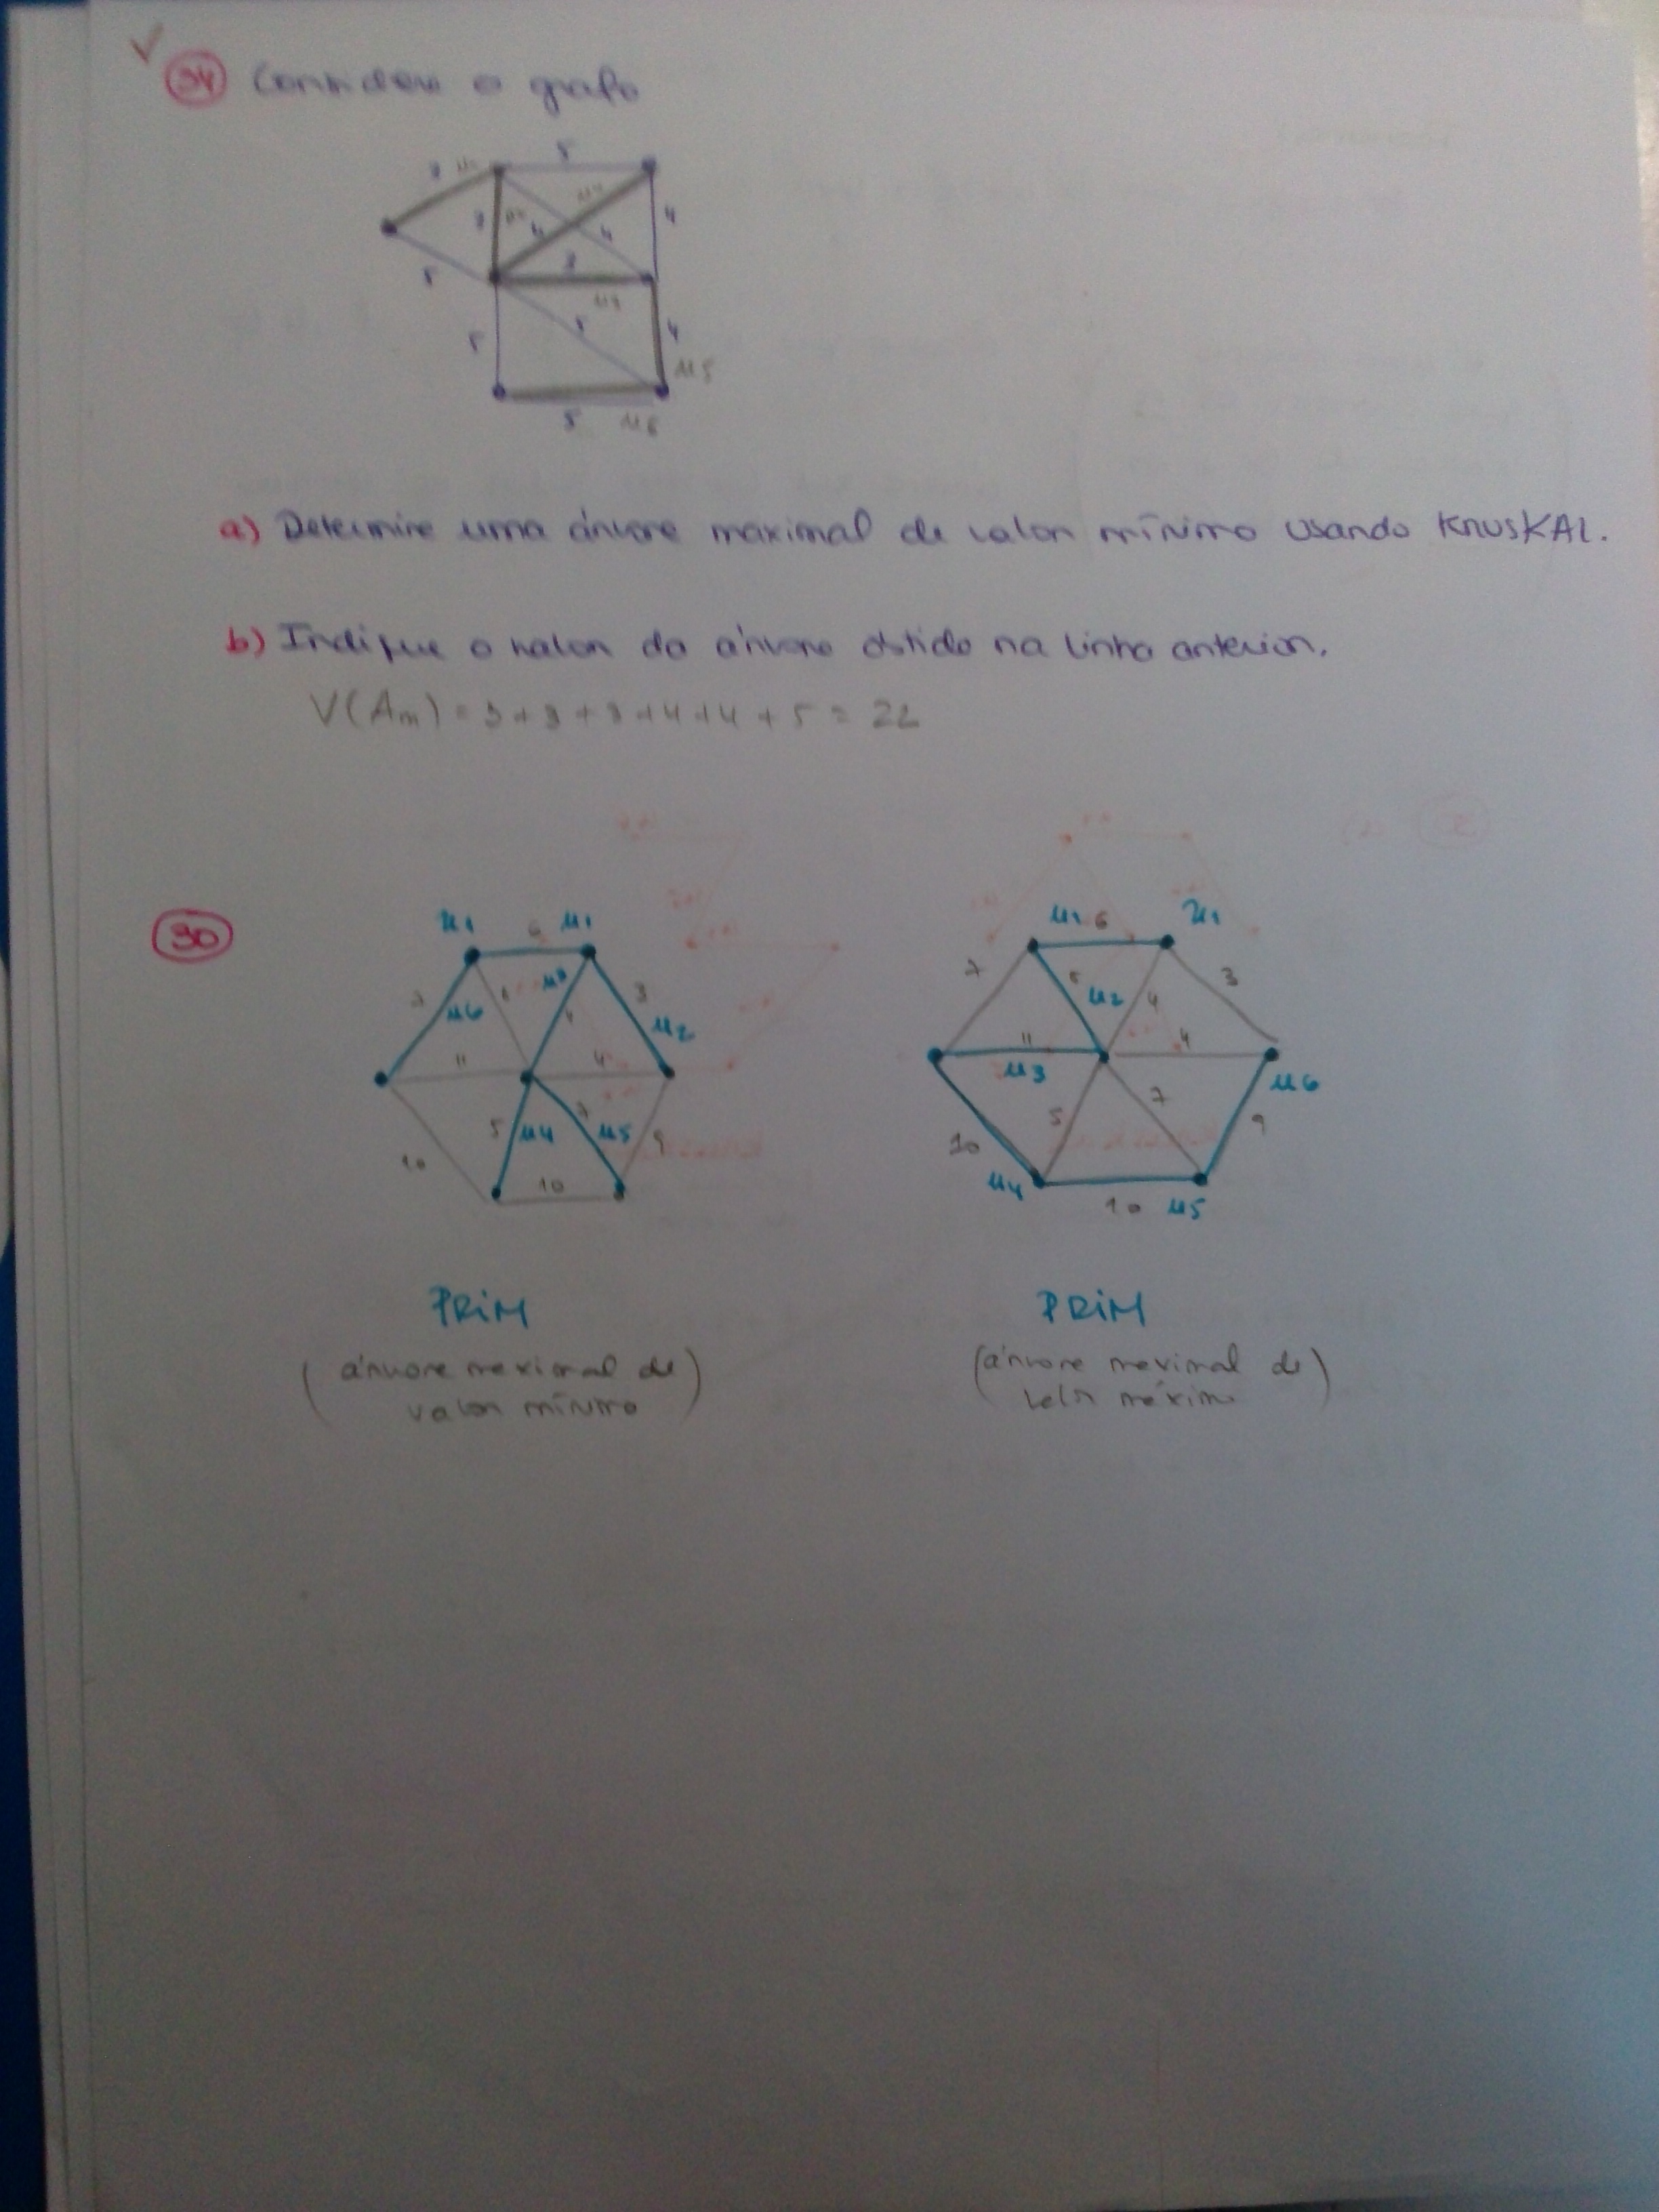 34 Considere o grafo
3 u1 5
3 u2 4 u4 4 4
5 3
u3
5 5 4
u5
5 u6
a) Determine uma árvore maximal de valor mínimo usando KRUSKAL.
b) Indique o valor da árvore obtido na linha anterior.
V(Am) = 3 + 3 + 3 + 4 + 4 + 5 = 22
30
u1 6 u1 u1 6 u1
7 u6 6 u3 4 3 u2 7 6 u2 4 3
11 4 11 u3 4 u6
5 u4 7 u5 9 5 7 9
10 10 10 u4 10 u5
PRIM PRIM
(árvore maximal de valor mínimo)
(árvore maximal de valor máximo)